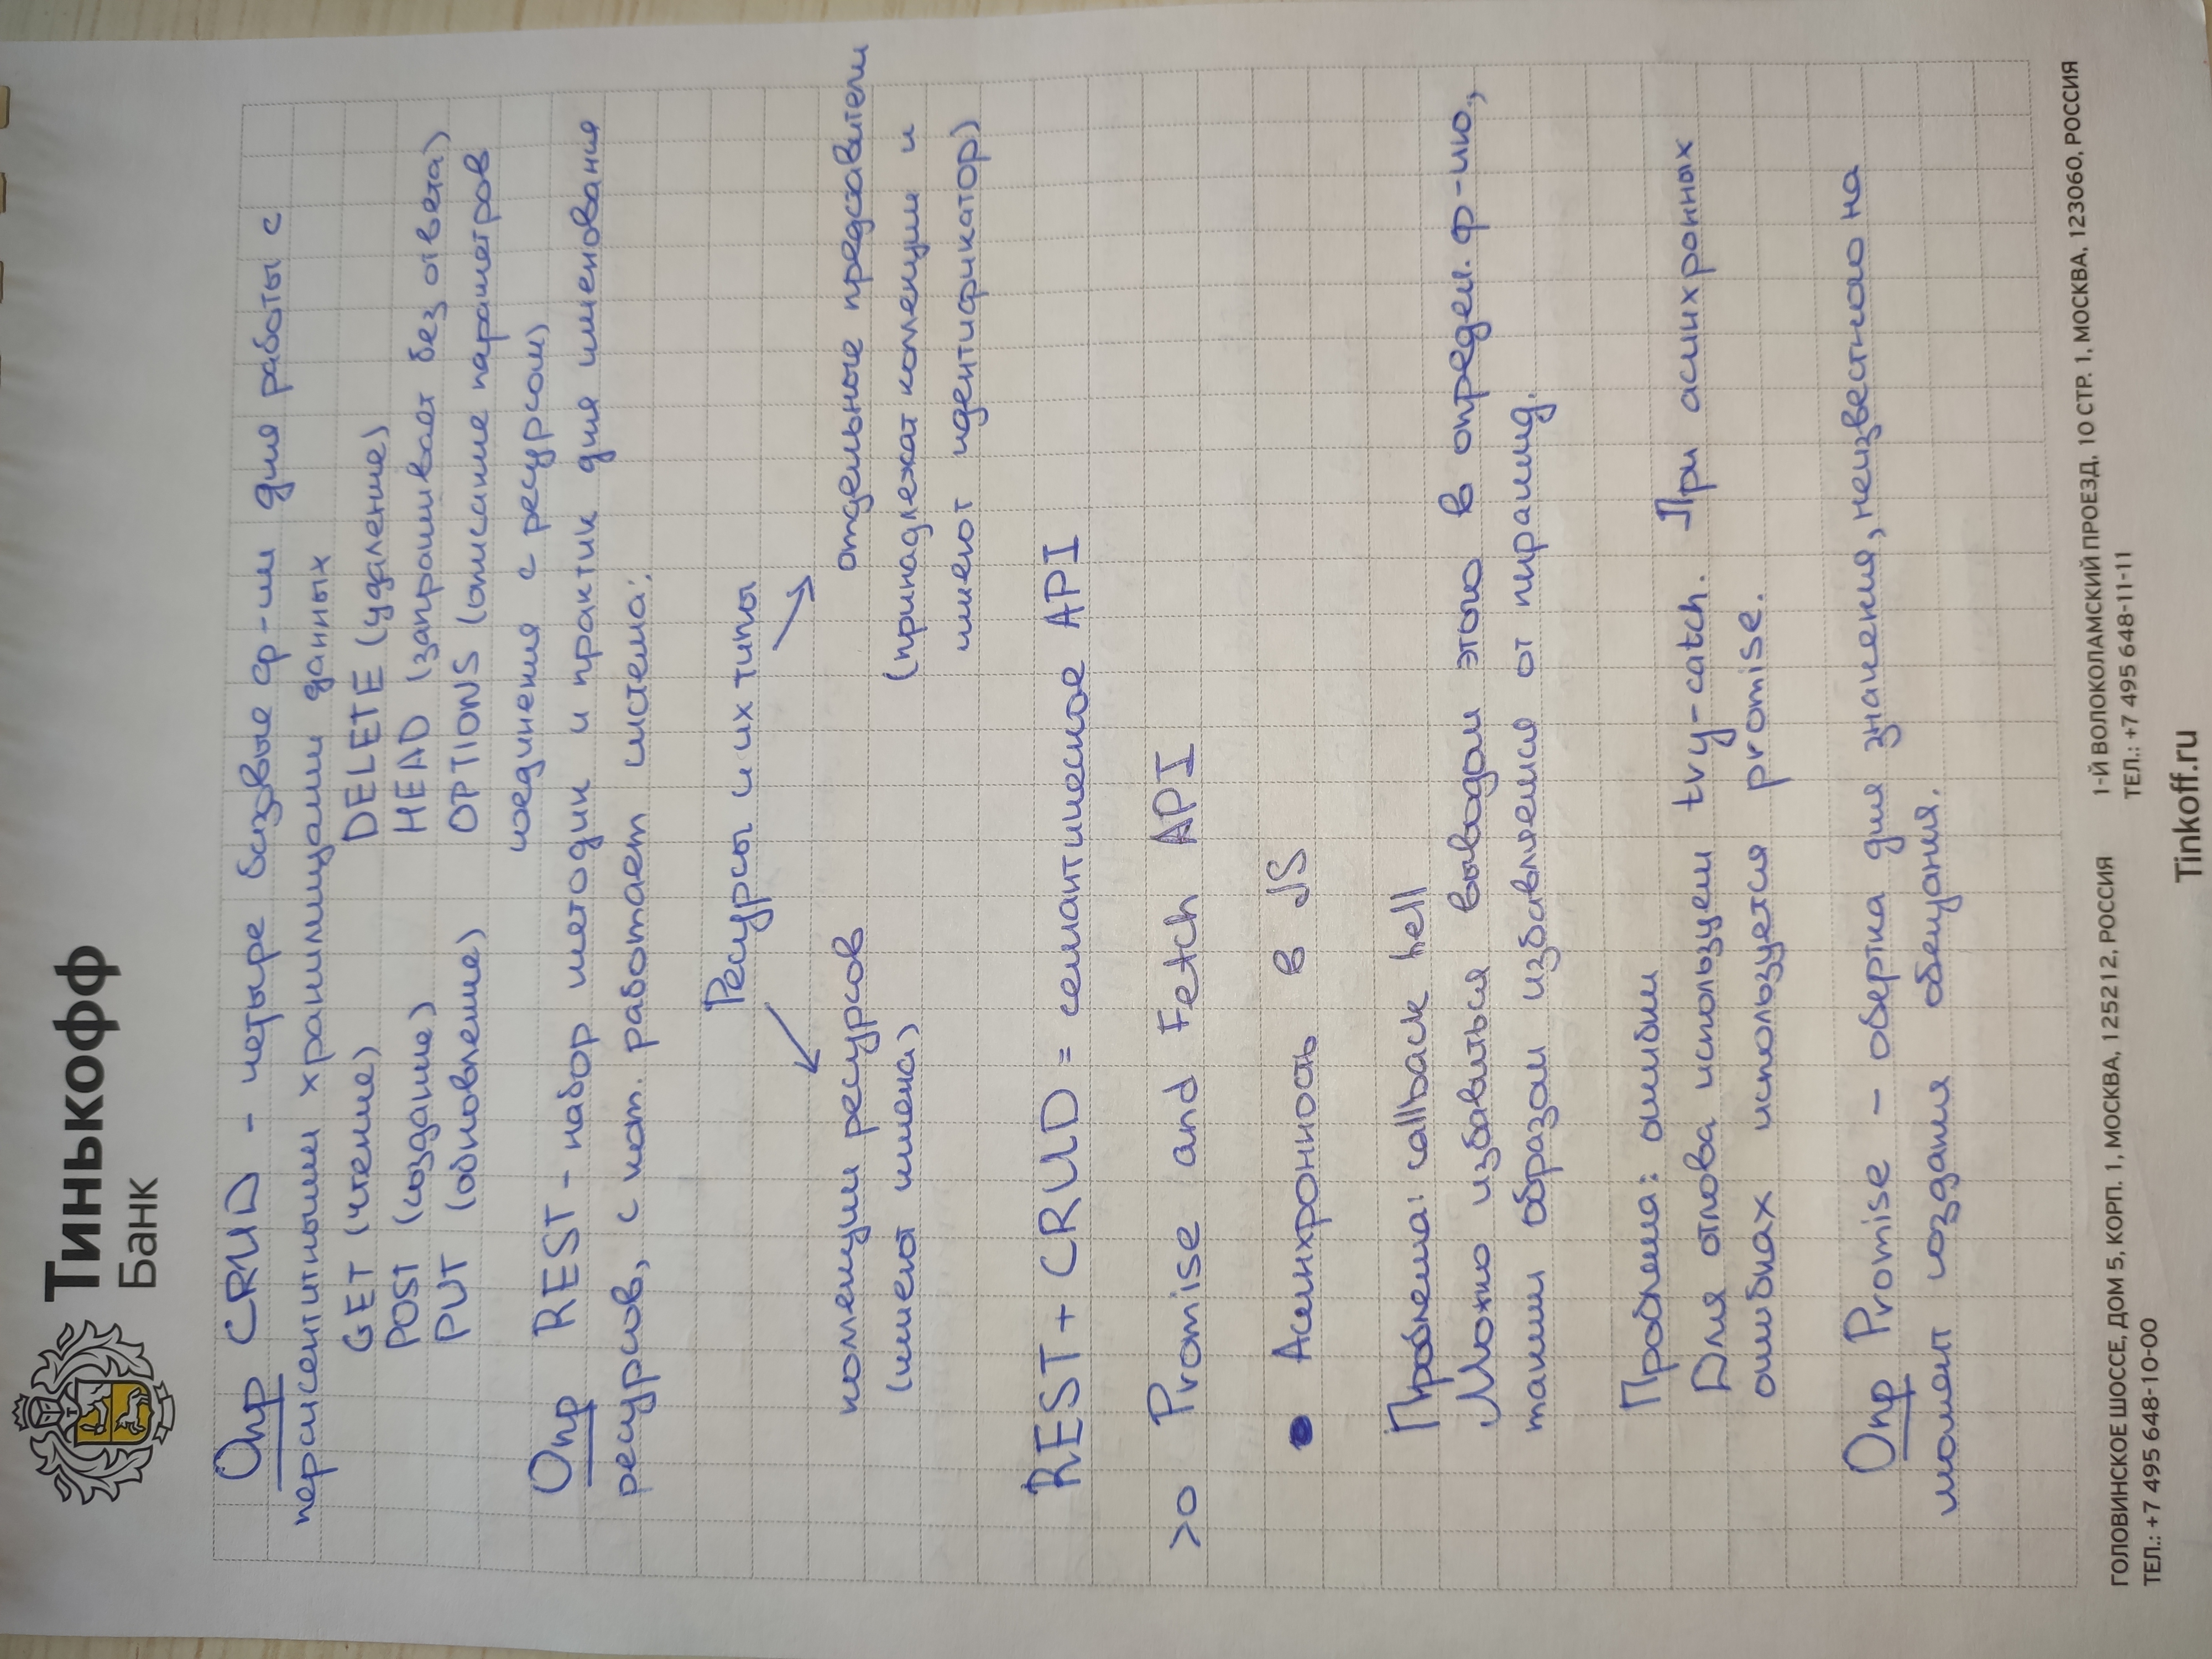 Тинькофф
Банк
Опр CRUD - четыре базовые ф-ии для работы с
персисентитными хранилищами данных
GET (чтение) DELETE (удаление)
POST (создание) HEAD (запрашивает без ответа)
PUT (обновление) OPTIONS (описание параметров
соединения с ресурсом)
Опр REST - набор методик и практик для именования
ресурсов, с кот. работает система:
Ресурсы и их типы
коллекции ресурсов отдельные представители
(имеют имена) (принадлежат коллекции и
имеют идентификатор)
REST + CRUD = семантическое API
>o Promise and Fetch API
• Асинхронность в JS
Проблема: callback hell
Можно избавиться выводом этого в определ. ф-ию,
таким образом избавляемся от пирамид.
Проблема: ошибки
Для отлова используем try-catch. При асинхронных
ошибках используется promise.
Опр Promise - обертка для значения, неизвестного на
момент создания обещания.
ГОЛОВИНСКОЕ ШОССЕ, ДОМ 5, КОРП. 1, МОСКВА, 125212, РОССИЯ 1-Й ВОЛОКОЛАМСКИЙ ПРОЕЗД, 10 СТР. 1, МОСКВА, 123060, РОССИЯ
ТЕЛ.: +7 495 648-10-00 ТЕЛ.: +7 495 648-11-11
Tinkoff.ru